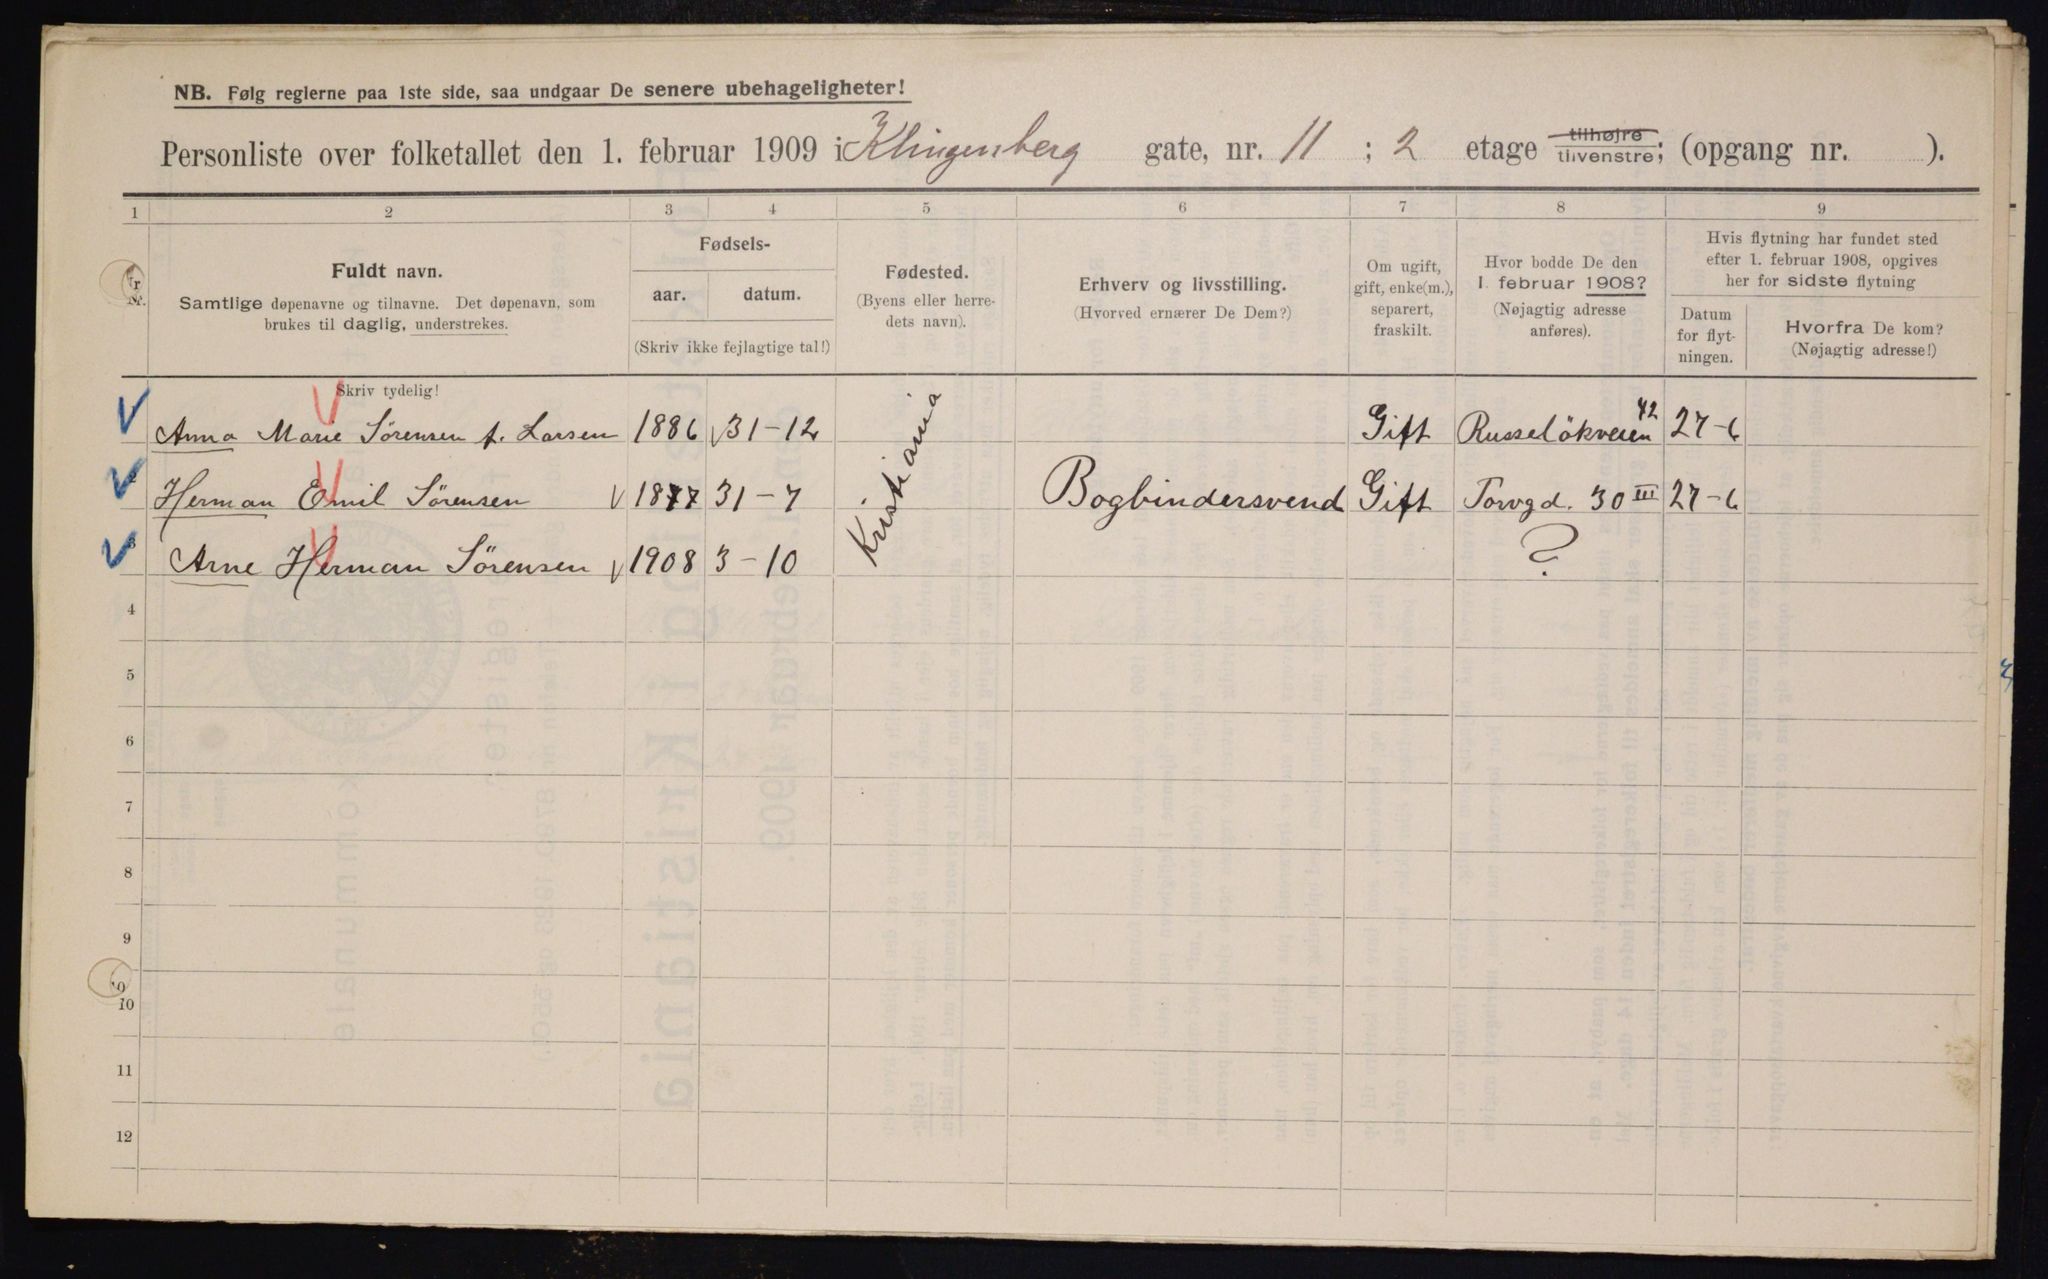 NB. Følg reglerne paa 1ste side, saa undgaar De senere ubehageligheter!
Personliste over folketallet den 1. februar 1909 i Klingenberg gate, nr. 11 ; 2 etage tilhøjre tilvenstre; (opgang nr. ).
1 2 3 4 5 6 7 8 9
Nr.
Fuldt navn.
Samtlige døpenavne og tilnavne. Det døpenavn, som
brukes til daglig, understrekes.
Fødsels-
aar. datum.
(Skriv ikke fejlagtige tal!)
Fødested.
(Byens eller herre-
dets navn).
Erhverv og livsstilling.
(Hvorved ernærer De Dem?)
Om ugift,
gift, enke(m.),
separert,
fraskilt.
Hvor bodde De den
1. februar 1908?
(Nøjagtig adresse
anføres).
Hvis flytning har fundet sted
efter 1. februar 1908, opgives
her for sidste flytning
Datum
for flyt-
ningen.
Hvorfra De kom?
(Nøjagtig adresse!)
Skriv tydelig!
Anna Marie Sørensen f. Larsen 1886 31-12 Kristiania Gift Russeløkveien 42 27-6
Herman Emil Sørensen 1877 31-7 Bogbindersvend Gift Torvgd. 30 III 27-6
3 Arne Herman Sørensen 1908 3-10 ?
4
5
6
7
8
9
10
11
12